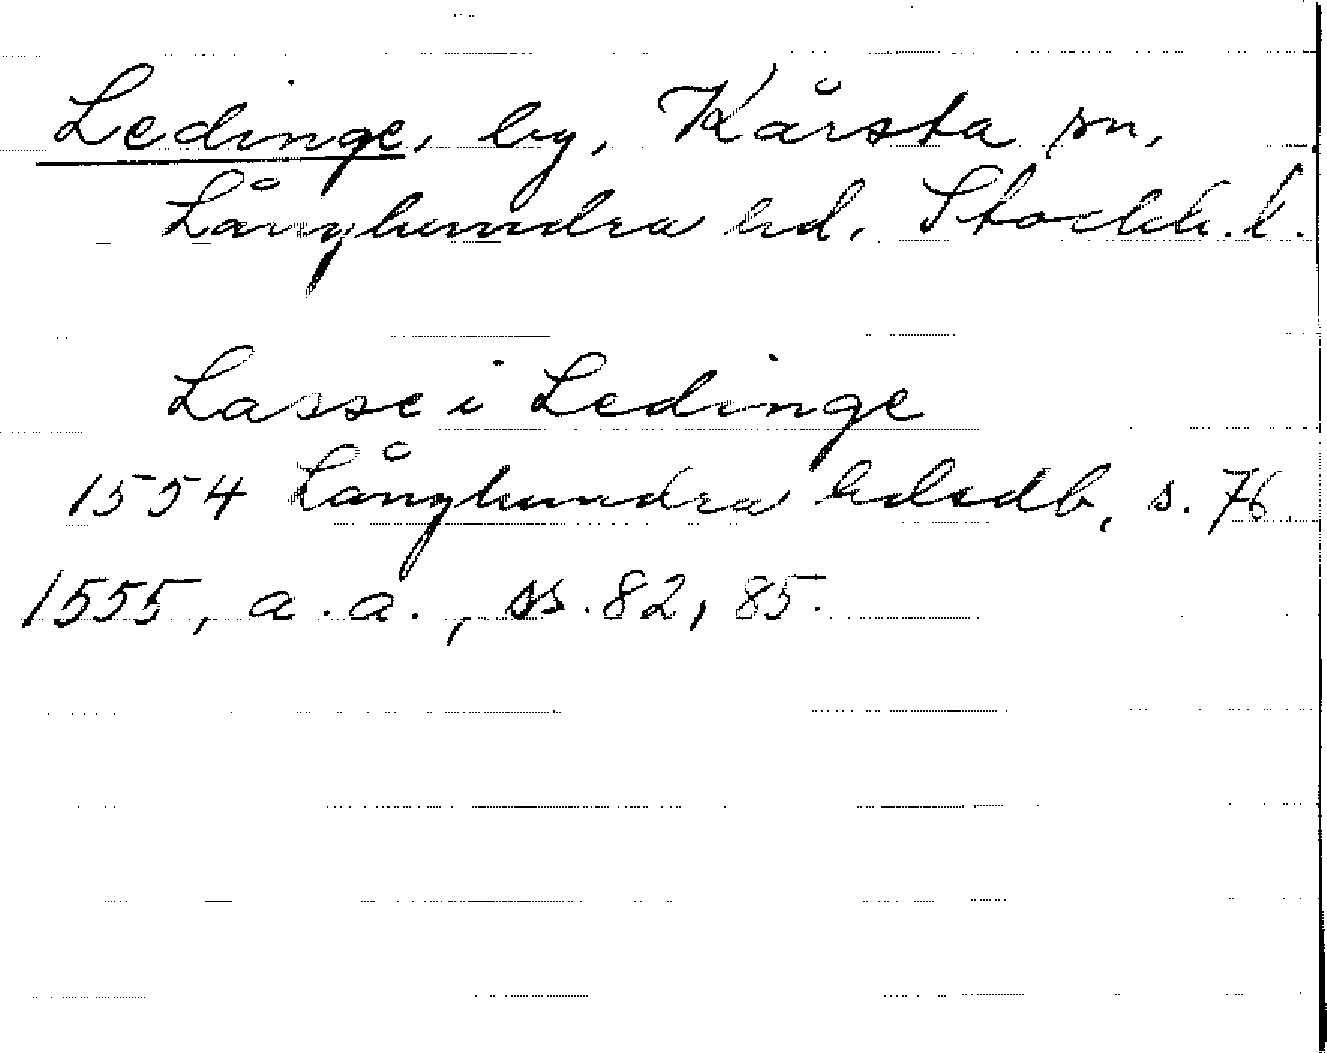 Ledinge, by, Kårsta sn,
Långhundra hd. Stockh. l.
Lasse i Ledinge
1554 Långhundra hdsdb, s. 76
1555, a.a., ss. 82, 85.